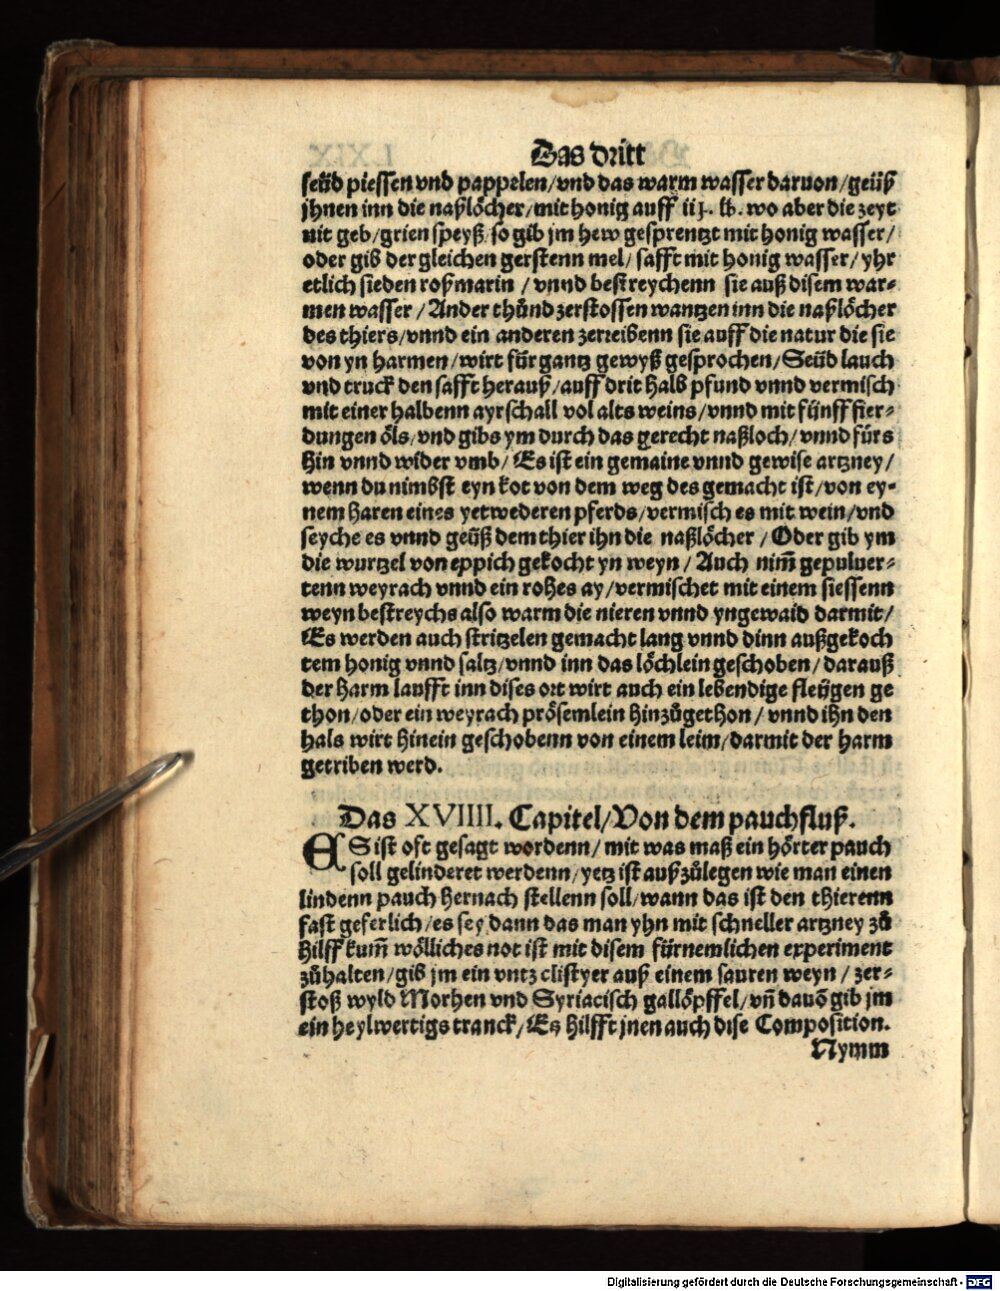 Das dritt
seüd piessen vnd pappelen/vnd das warm wasser daruon/geüß
jhnen inn die naßlöcher/mit honig auff iij. lb. wo aber die zeyt
nit geb/grien speyß/so gib jm hew gesprentzt mit honig wasser/
oder gib der gleichen gerstenn mel/safft mit honig wasser/yhr
etlich sieden roßmarin/vnnd bestreychenn sie auß disem war⸗
men wasser/Ander thůnd zerstossen wantzen inn die naßlöcher
des thiers/vnnd ein anderen zerreibenn sie auff die natur die sie
von yn harmen/wirt für gantz gewyß gesprochen/Seüd lauch
vnd truck den safft herauß/auff drit halb pfund vnnd vermisch
mit einer halbenn ayrschall vol alts weins/vnnd mit fünff fier⸗
dungen öls/vnd gibs ym durch das gerecht naßloch/vnnd fürs
hin vnnd wider vmb/Es ist ein gemaine vnnd gewise artzney/
wenn du nimbst eyn kot von dem weg des gemacht ist/von ey⸗
nem haren eines yetwederen pferds/vermisch es mit wein/vnd
seyche es vnnd geüß dem thier ihn die naßlöcher/Oder gib ym
die wurtzel von eppich gekocht yn weyn/Auch nim̄ gepuluer⸗
tenn weyrach vnnd ein rohes ay/vermischet mit einem siessenn
weyn bestreychs also warm die nieren vnnd yngewaid darmit/
Es werden auch stritzelen gemacht lang vnnd dinn außgekoch
tem honig vnnd saltz/vnnd inn das löchlein geschoben/darauß
der harm laufft inn dises ort wirt auch ein lebendige fleügen ge
thon/oder ein weyrach prösemlein hinzůgethon/vnnd ihn den
hals wirt hinein geschobenn von einem leim/darmit der harm
getriben werd.
Das XVIIII. Capitel/Von dem pauchfluß.
ES ist oft gesagt wordenn/mit was maß ein hörter pauch
soll gelinderet werdenn/yetz ist außzůlegen wie man einen
lindenn pauch hernach stellenn soll/wann das ist den thierenn
fast geferlich/es sey dann das man yhn mit schneller artzney zů
hilff kum̄ wölliches not ist mit disem fürnemlichen experiment
zůhalten/gib jm ein vntz clistyer auß einem sauren weyn/zer⸗
stoß wyld Morhen vnd Syriacisch gallöpffel/vn̄ dauō gib jm
ein heylwertigs tranck/Es hilfft jnen auch dise Composition.
Nymm
Digitalisierung gefördert durch die Deutsche Forschungsgemeinschaft - DFG